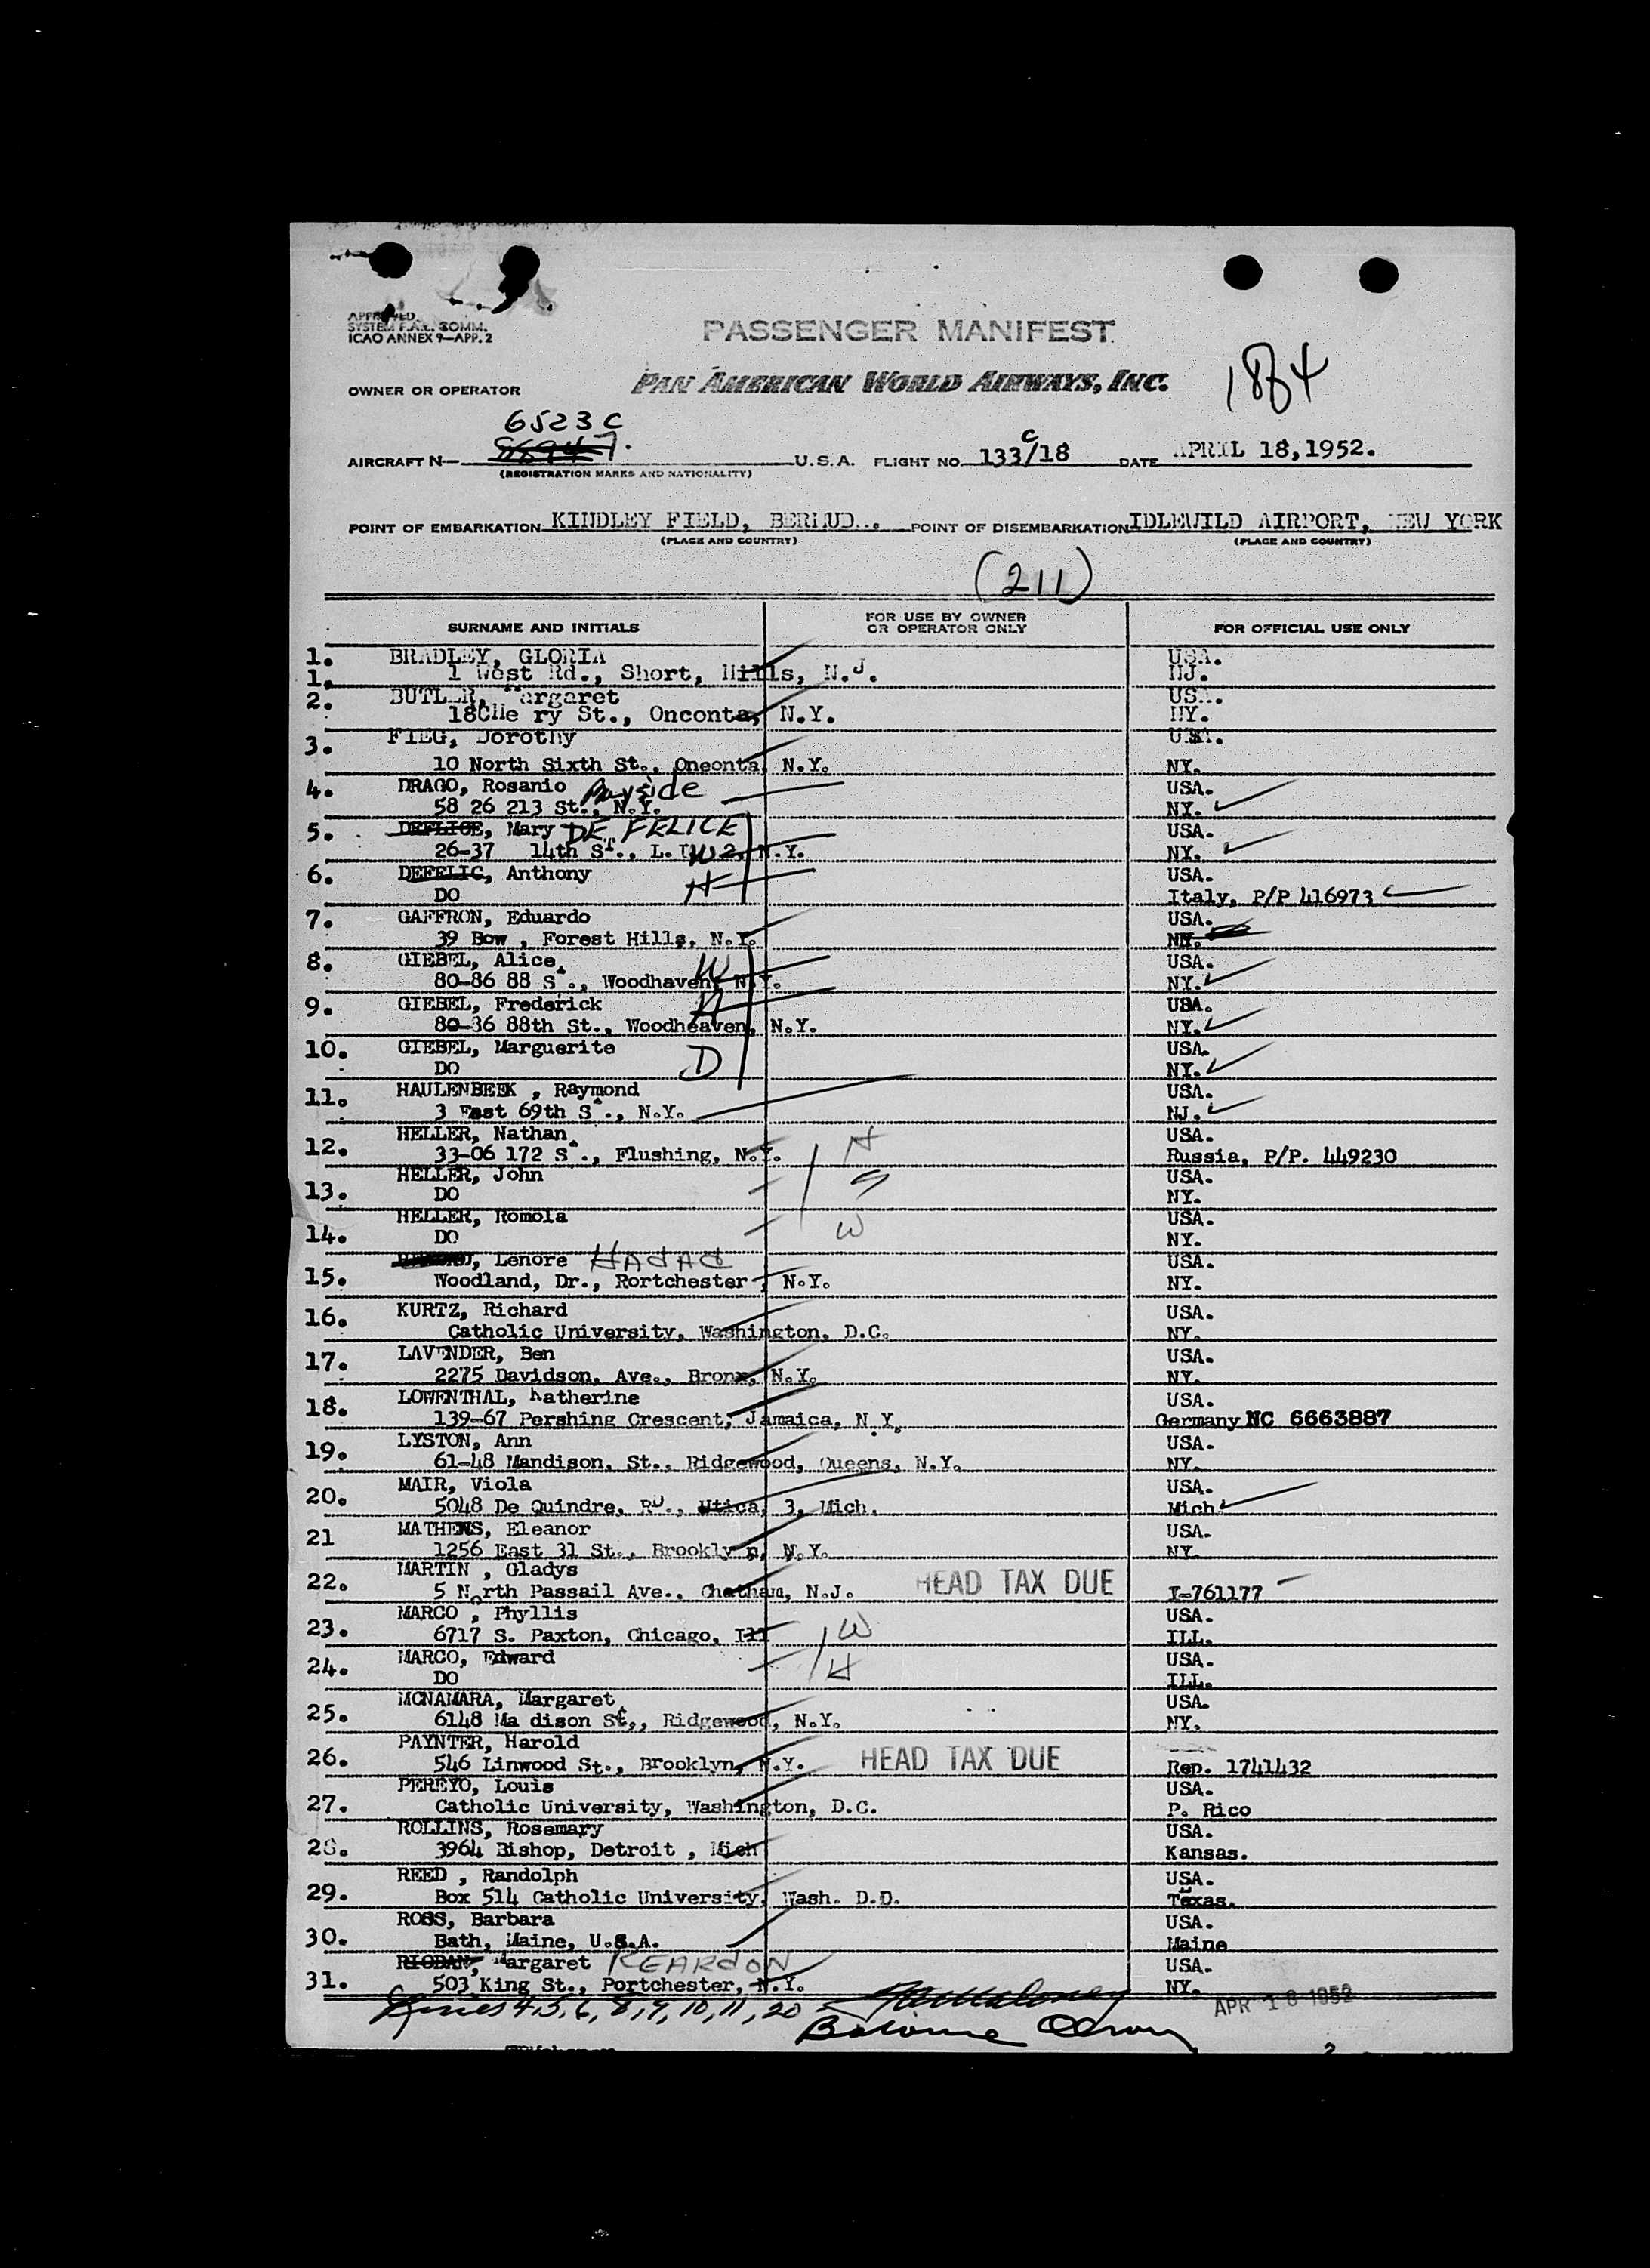 APPROVED
SYSTEM F.A.L. COMM.
ICAO ANNEX 9—APP. 2
PASSENGER MANIFEST
OWNER OR OPERATOR PAN AMERICAN WORLD AIRWAYS, INC.
1884
6523C
AIRCRAFT N— U.S.A. FLIGHT NO. 133C/18 DATE APRIL 18,1952.
(REGISTRATION MARKS AND NATIONALITY)
POINT OF EMBARKATION KINDLEY FIELD, POINT OF DISEMBARKATION IDLEWILD AIRPORT, NEW YORK
(PLACE AND COUNTRY) (PLACE AND COUNTRY)
(211)
SURNAME AND INITIALS FOR USE BY OWNER OR OPERATOR ONLY FOR OFFICIAL USE ONLY
1. BRADLEY, GLORIA USA.
1. 1 West Rd., Short, Hills, N.J. NJ.
2. BUTLER, Margaret USA.
St., Oneonta, N.Y. NY.
3. FIEG, Dorothy USA.
10 North Sixth St., Oneonta, N.Y. NY.
4. DRAGO, Rosanio Bayside USA.
58 26 213 St., N.Y. NY.
5. DEFLICE, Mary DE FELICE USA.
26-37 14th ST., L.I. W 2, N.Y. NY.
6. DEFELIC, Anthony USA.
DO H Italy, P/P 416973
7. GAFFRON, Eduardo USA.
39 Bow , Forest Hills, N.Y. NY.
8. GIEBEL, Alice W USA.
80-86 88 St., Woodhaven, N.Y. NY.
9. GIEBEL, Frederick H USA.
80-36 88th St., Woodheaven, N.Y. NY.
10. GIEBEL, Marguerite D USA.
DO NY.
11. HAULENBEEK , Raymond USA.
3 East 69th St., N.Y. NJ.
12. HELLER, Nathan H USA.
33-06 172 St., Flushing, N.Y. Russia, P/P. 449230
13. HELLER, John S USA.
DO NY.
14. HELLER, Romola W USA.
DO NY.
15. Lenore HADAD USA.
Woodland, Dr., Rortchester , N.Y. NY.
16. KURTZ, Richard USA.
Catholic University, Washington, D.C. NY.
17. LAVENDER, Ben USA.
2275 Davidson, Ave., Bronx, N.Y. NY.
18. LOWENTHAL, Katherine USA.
139-67 Pershing Crescent, Jamaica, N.Y. Germany NC 6663887
19. LYSTON, Ann USA.
61-48 Mandison, St., Ridgewood, Queens, N.Y. NY.
20. MAIR, Viola USA.
5048 De Quindre, RD., Utica, 3, Mich. Mich.
21 MATHEWS, Eleanor USA.
1256 East 31 St., Brooklyn, N.Y. NY.
22. MARTIN , Gladys
5 North Passail Ave., Chatham, N.J. HEAD TAX DUE I-761177
23. MARCO , Phyllis W USA.
6717 S. Paxton, Chicago, Ill ILL.
24. MARCO, Edward H USA.
DO ILL.
25. MCNAMARA, Margaret USA.
6148 Ma dison St,, Ridgewood, N.Y. NY.
26. PAYNTER, Harold
546 Linwood St., Brooklyn, N.Y. HEAD TAX DUE Rep. 1741432
27. PEREYO, Louis USA.
Catholic University, Washington, D.C. P. Rico
28. ROLLINS, Rosemary USA.
3964 Bishop, Detroit , Mich Kansas.
29. REED , Randolph USA.
Box 514 Catholic University, Wash. D.D. Texas.
30. ROSS, Barbara USA.
Bath, Maine, U.S.A. Maine
31. RIODAN, Margaret REARDON USA.
503 King St., Portchester, N.Y. NY.
Lines 4,5,6,8,9,10,11,20
APR 18 1952